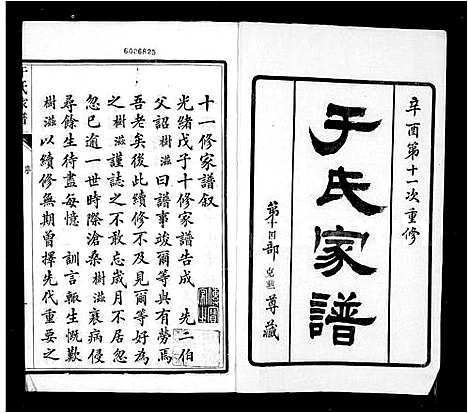 6026825
辛酉第十一次重修
于氏家譜
第十四部
尊藏
十一修家譜叙
光緒戊子十修家譜告成 先二伯
父詔樹滋曰譜事竣爾等與有勞焉
吾老矣後此續修不及見爾等好為
之樹滋謹誌之不敢忘歲月不居忽
忽已逾一世時際滄桑樹滋衰病侵
尋餘生待盡每憶 訓言輒生慨歎
樹滋以續修無期曾擇先代重要之
于氏家譜